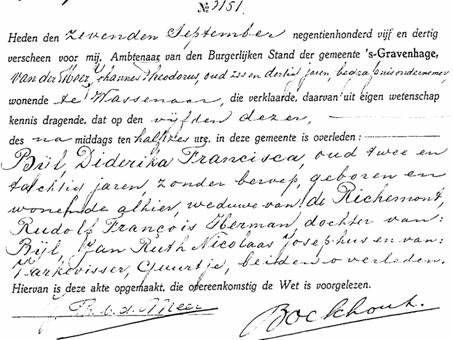 No 2151.
Heden den zevenden September negentienhonderd vijf en dertig
verscheen voor mij, Ambtenaar van den Burgerlijken Stand der gemeente 's-Gravenhage,
van der Meer, Johannes Theodorus, oud zes en dertig jaren, begrafenisondernemer,
wonende te Wassenaar, die verklaarde, daarvan uit eigen wetenschap
kennis dragende, dat op den vijfden dezer,
des na middags ten half zes ure, in deze gemeente is overleden:
Bijl, Diderika Francisca, oud twee en
tachtig jaren, zonder beroep, geboren en
wonende alhier, weduwe van: de Richemont,
Rudolf François Herman, dochter van:
Bijl, Jan Ruth Nicolaas Josephus en van:
Guurtje, beiden overleden.
Hiervan is deze akte opgemaakt, die overeenkomstig de Wet is voorgelezen.
v. d. Meer Bockhout.